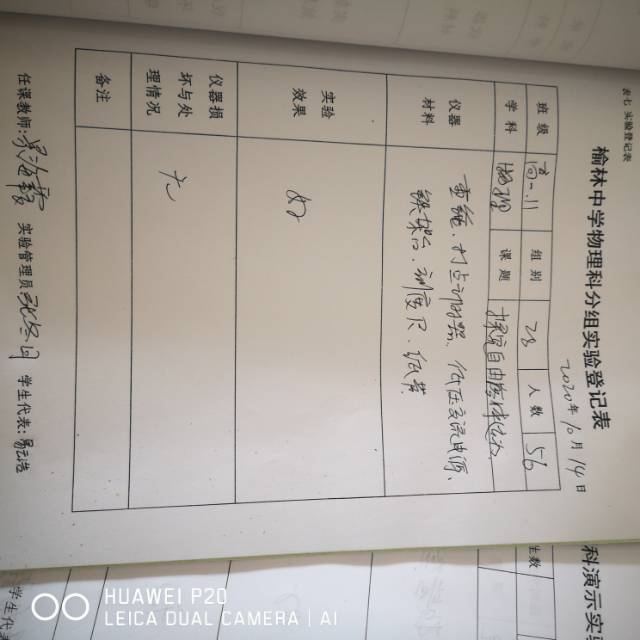 表七 实验登记表
榆林中学物理科分组实验登记表
2020年10月14日
班级 高一.11 组别 28 人数 56
学科 物理 课题 探究自由落体运动
仪器材料 重锤、打点计时器、低压交流电源、
铁架台、刻度尺、纸带
实验效果 好
仪器损坏与处理情况 无
备注
任课教师: 实验管理员: 学生代表:
科演示实
生数
学生代
HUAWEI P20
LEICA DUAL CAMERA | AI